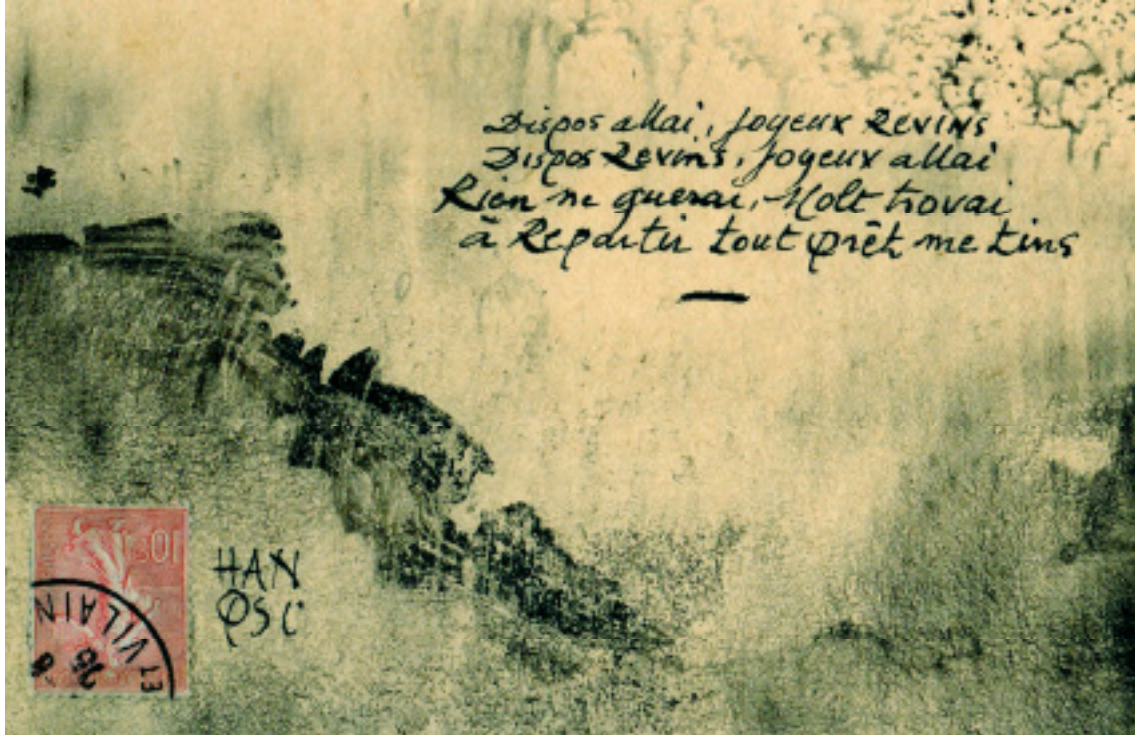 Dispos allai, joyeux Revins
Dispos Revins, joyeux allai
Rien ne querai, Molt trovai
à Repartir tout prêt me tins
HAN
10c
ET VILAIN